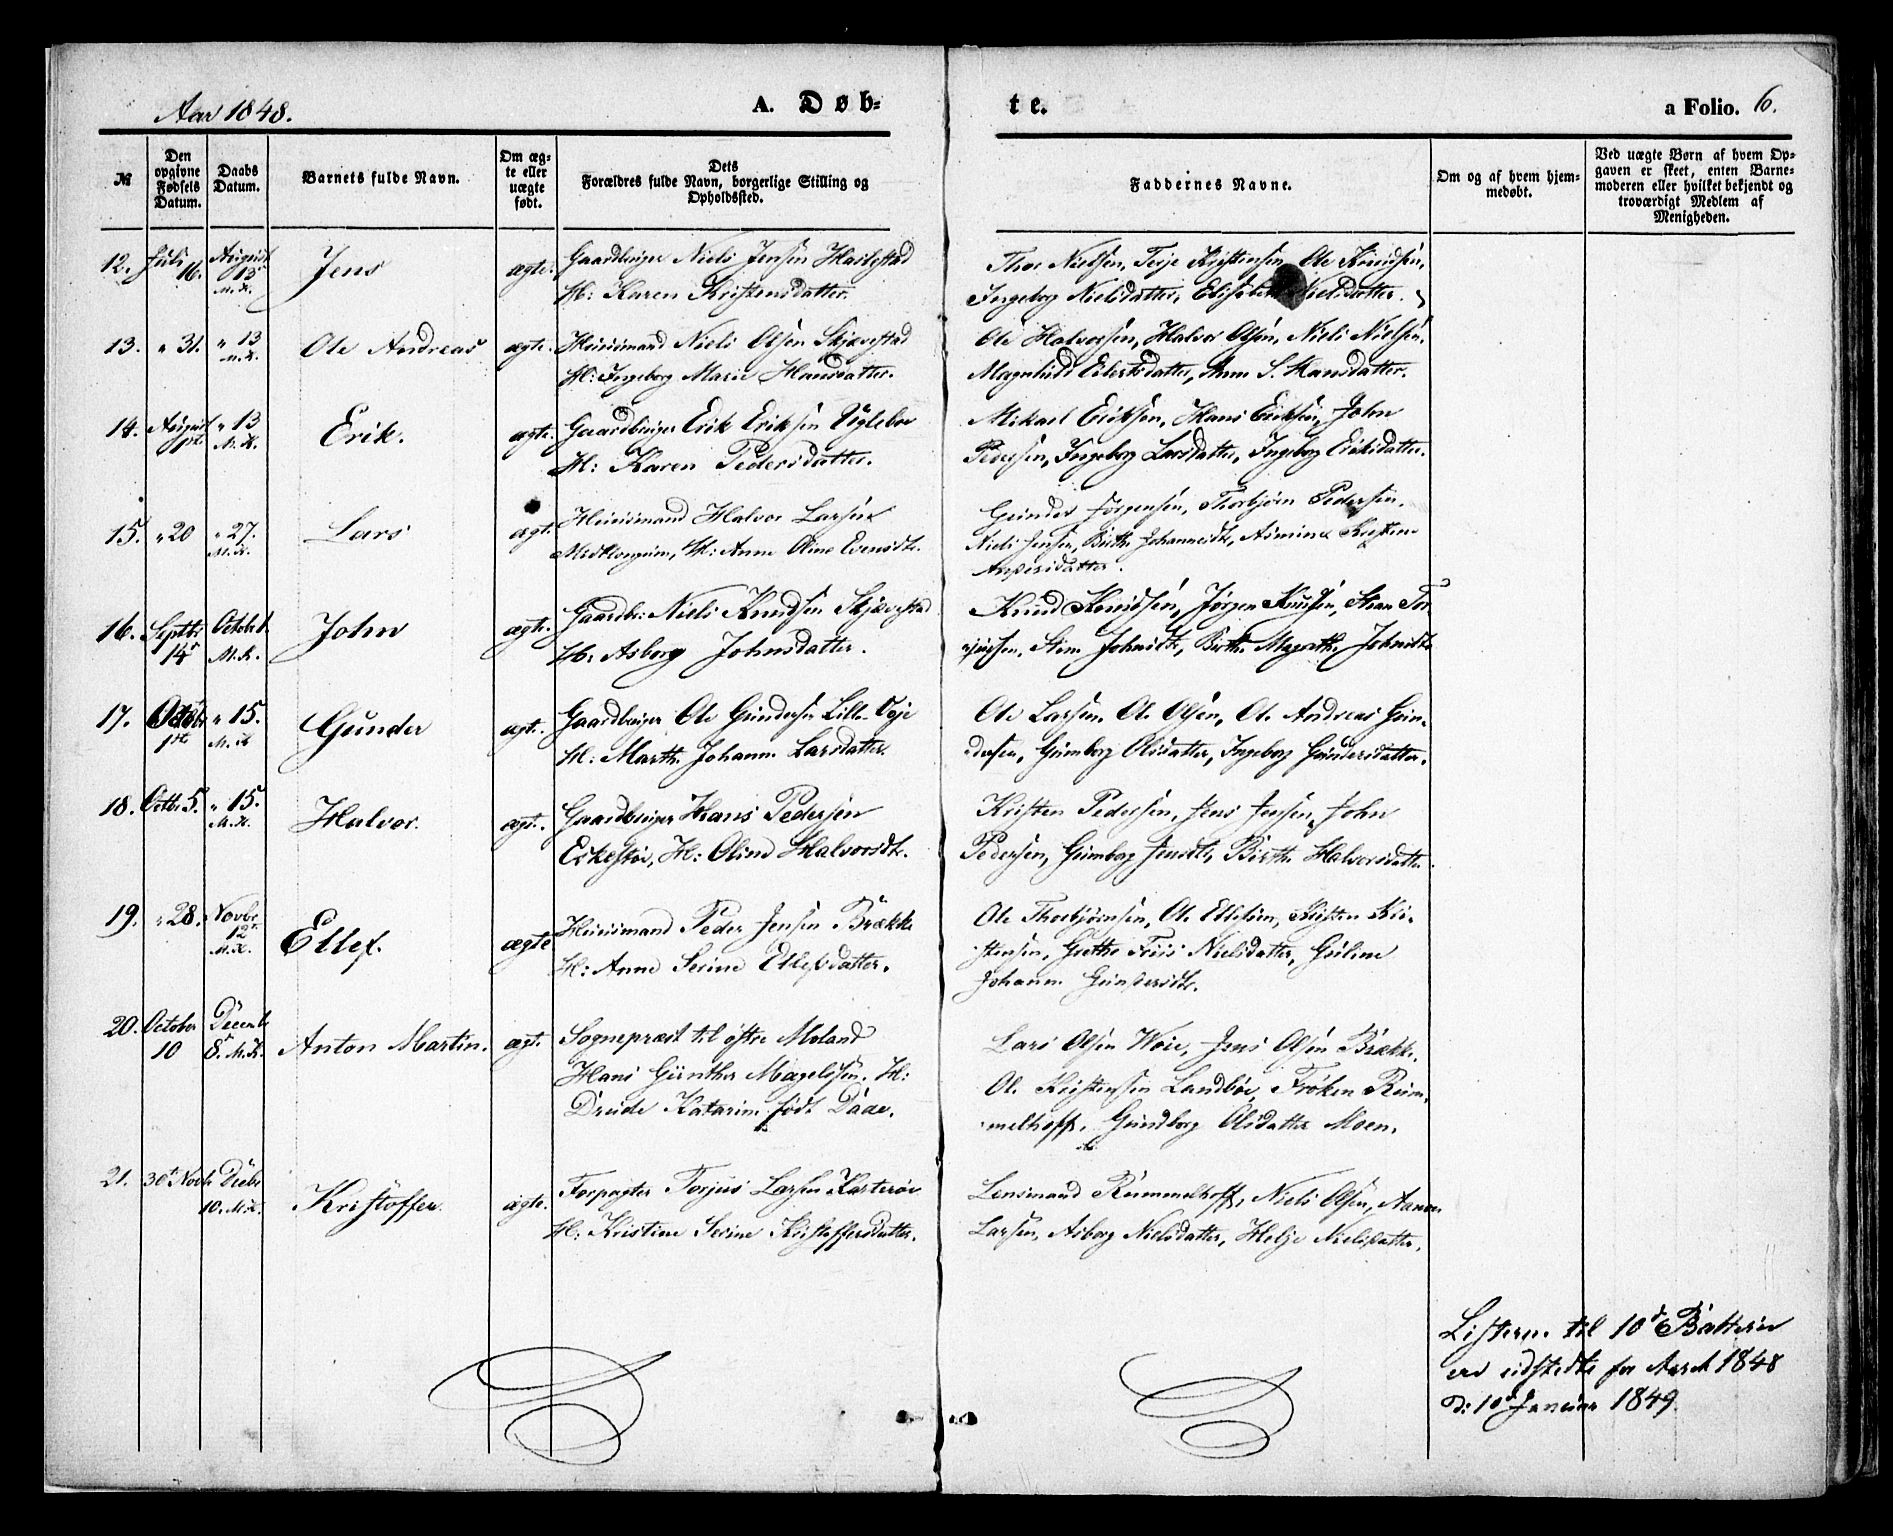 Aar 1848.
A. Døb-
te.
a Folio. 6.
№
Den opgivne Fødsels Datum.
Daabs Datum.
Barnets fulde Navn.
Om ægte eller uægte født.
Dets Forældres fulde Navn, borgerlige Stilling og Opholdssted.
Faddernes Navne.
Om og af hvem hjemmedøbt.
Ved uægte Børn af hvem Opgaven er skeet, enten Barnemoderen eller hvilket bekjendt og troværdigt Medlem af Menigheden.
12. Juli 16. August 13 M.K. Jens ægte. Gaardbruger Niels Jensen Haslestad
H: Karen Kristensdatter.
Thor Nielsen, Terje Kristensen, Ole Knudsen,
Ingeborg Nielsdatter, Nielsdatter.
13. " 31. " 13 M.K. Ole Andreas ægte. Huusmand Niels Olsen Skjævestad
H: Ingeborg Marie Hansdatter.
Ole Halvorsen, Halvor Olsen, Niels Nielsen,
Eilertsdatter, Anne S. Hansdatter.
14. August 1ste " 13 M.K. Erik. ægte. Gaardbruger Erik Eriksen Ugleboe
H: Karen Pedersdatter.
Mikael Eriksen, Hans Eriksen, John
Pedersen, Ingeborg Larsdatter, Ingeborg Eriksdatter.
15. " 20 " 27. M.K. Lars ægte. Huusmand Halvor Larsen
H: Anne Oline Evensdtr.
Gunder Jørgensen, Thorbjørn Pedersen,
Niels Jensen, Birthe Johannesdtr, Kirstine
16. Septbr 14 Octob 1. M.K. John ægte. Gaardbr: Niels Knudsen Skjævestad
H: Asborg Johnsdatter.
Knud Knudsen, Jørgen Knudsen,
Johnsdtr, Birthe Johnsdtr
17. Octbr 1ste " 15. M.K. Gunder ægte. Gaardbruger Ole Gundersen Lille Veje
H: Marthe Johanne Larsdatter
Ole Larsen, Ole Olsen, Ole Andreas Gun-
dersen, Gunborg Olsdatter, Ingeborg Gundersdatter.
18. Octbr 5. " 15. M.K. Halvor. ægte. Gaardbruger Hans Pedersen
H: Oline Halvorsdtr.
Kristen Pedersen, Jens Jensen, John
Pedersen, Gunborg Jensdtr, Birthe Halvorsdatter.
19. " 28. Novbr 12 M.K. Ellef. ægte Huusmand Peder Jensen Brække
H: Anne Serine Ellefsdatter.
Ole Thorbjørnsen, Ole Ellefsen, Kristen Kri-
stensen, Grethe Friis Nielsdatter,
Johanne
20. October 10 Decemb 8 M.K. Anton Martin. ægte. Sognepræst til østre Moland
Hans Günther Magelssen. H:
Drude Katarine født Daae.
Lars Olsen Woie, Jens Olsen Brække,
Ole Kristensen Landbøe, Frøken Rum-
melhoff, Gundborg Olsdatter Moen.
21. 30te Novb Decbr 10. M.K. Kristoffer. ægte. Forpagter Torjus Larsen
H: Kristine Serine Kristoffersdatter.
Lensmand Rummelhoff, Niels Olsen, Aanon
Larsen, Asborg Nielsdatter, Helje Nielsdatter.
Listerne til 10de Batterie
ere udstedte for Aaret 1848
d: 10de Januar 1849